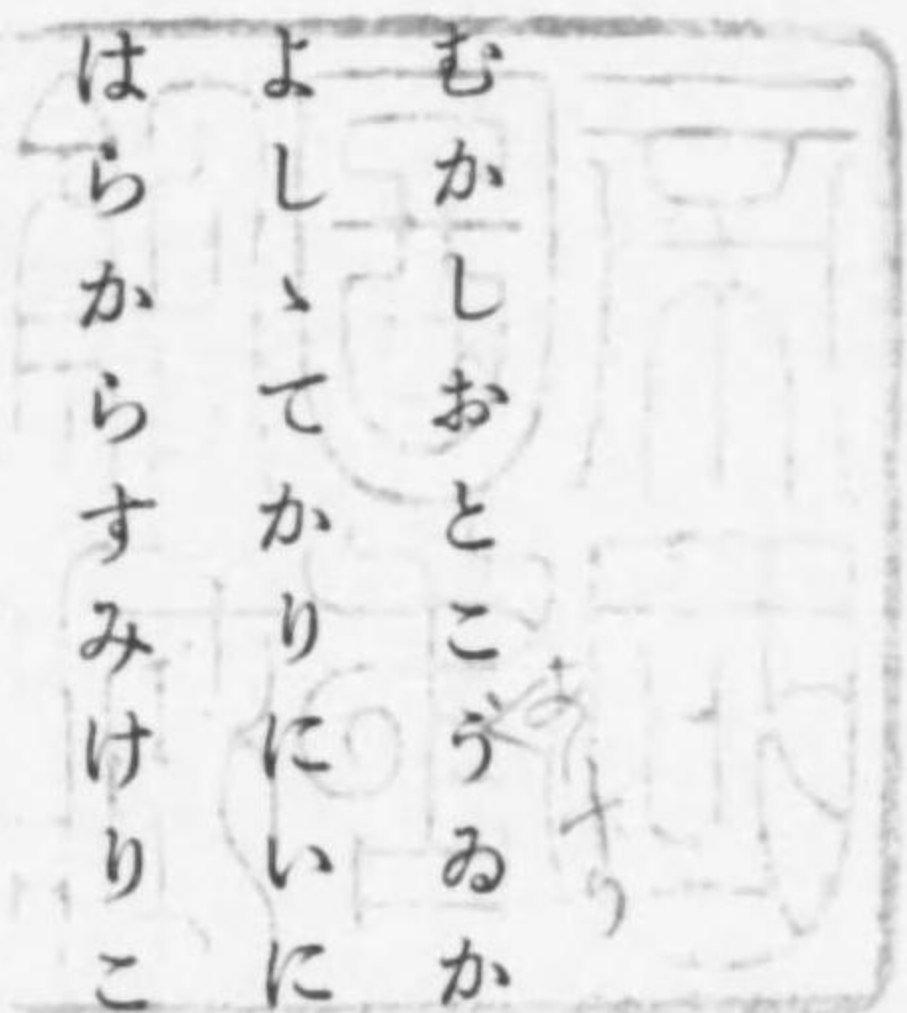 むかしおとこうゐか
よしゝてかりにいに
はらからすみけりこ